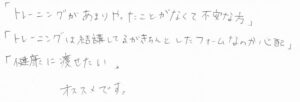 「トレーニングがあまりやったことがなくて不安な方」
「トレーニングは結構してるがきちんとしたフォームなのか心配」
「健康に痩せたい。
オススメです。